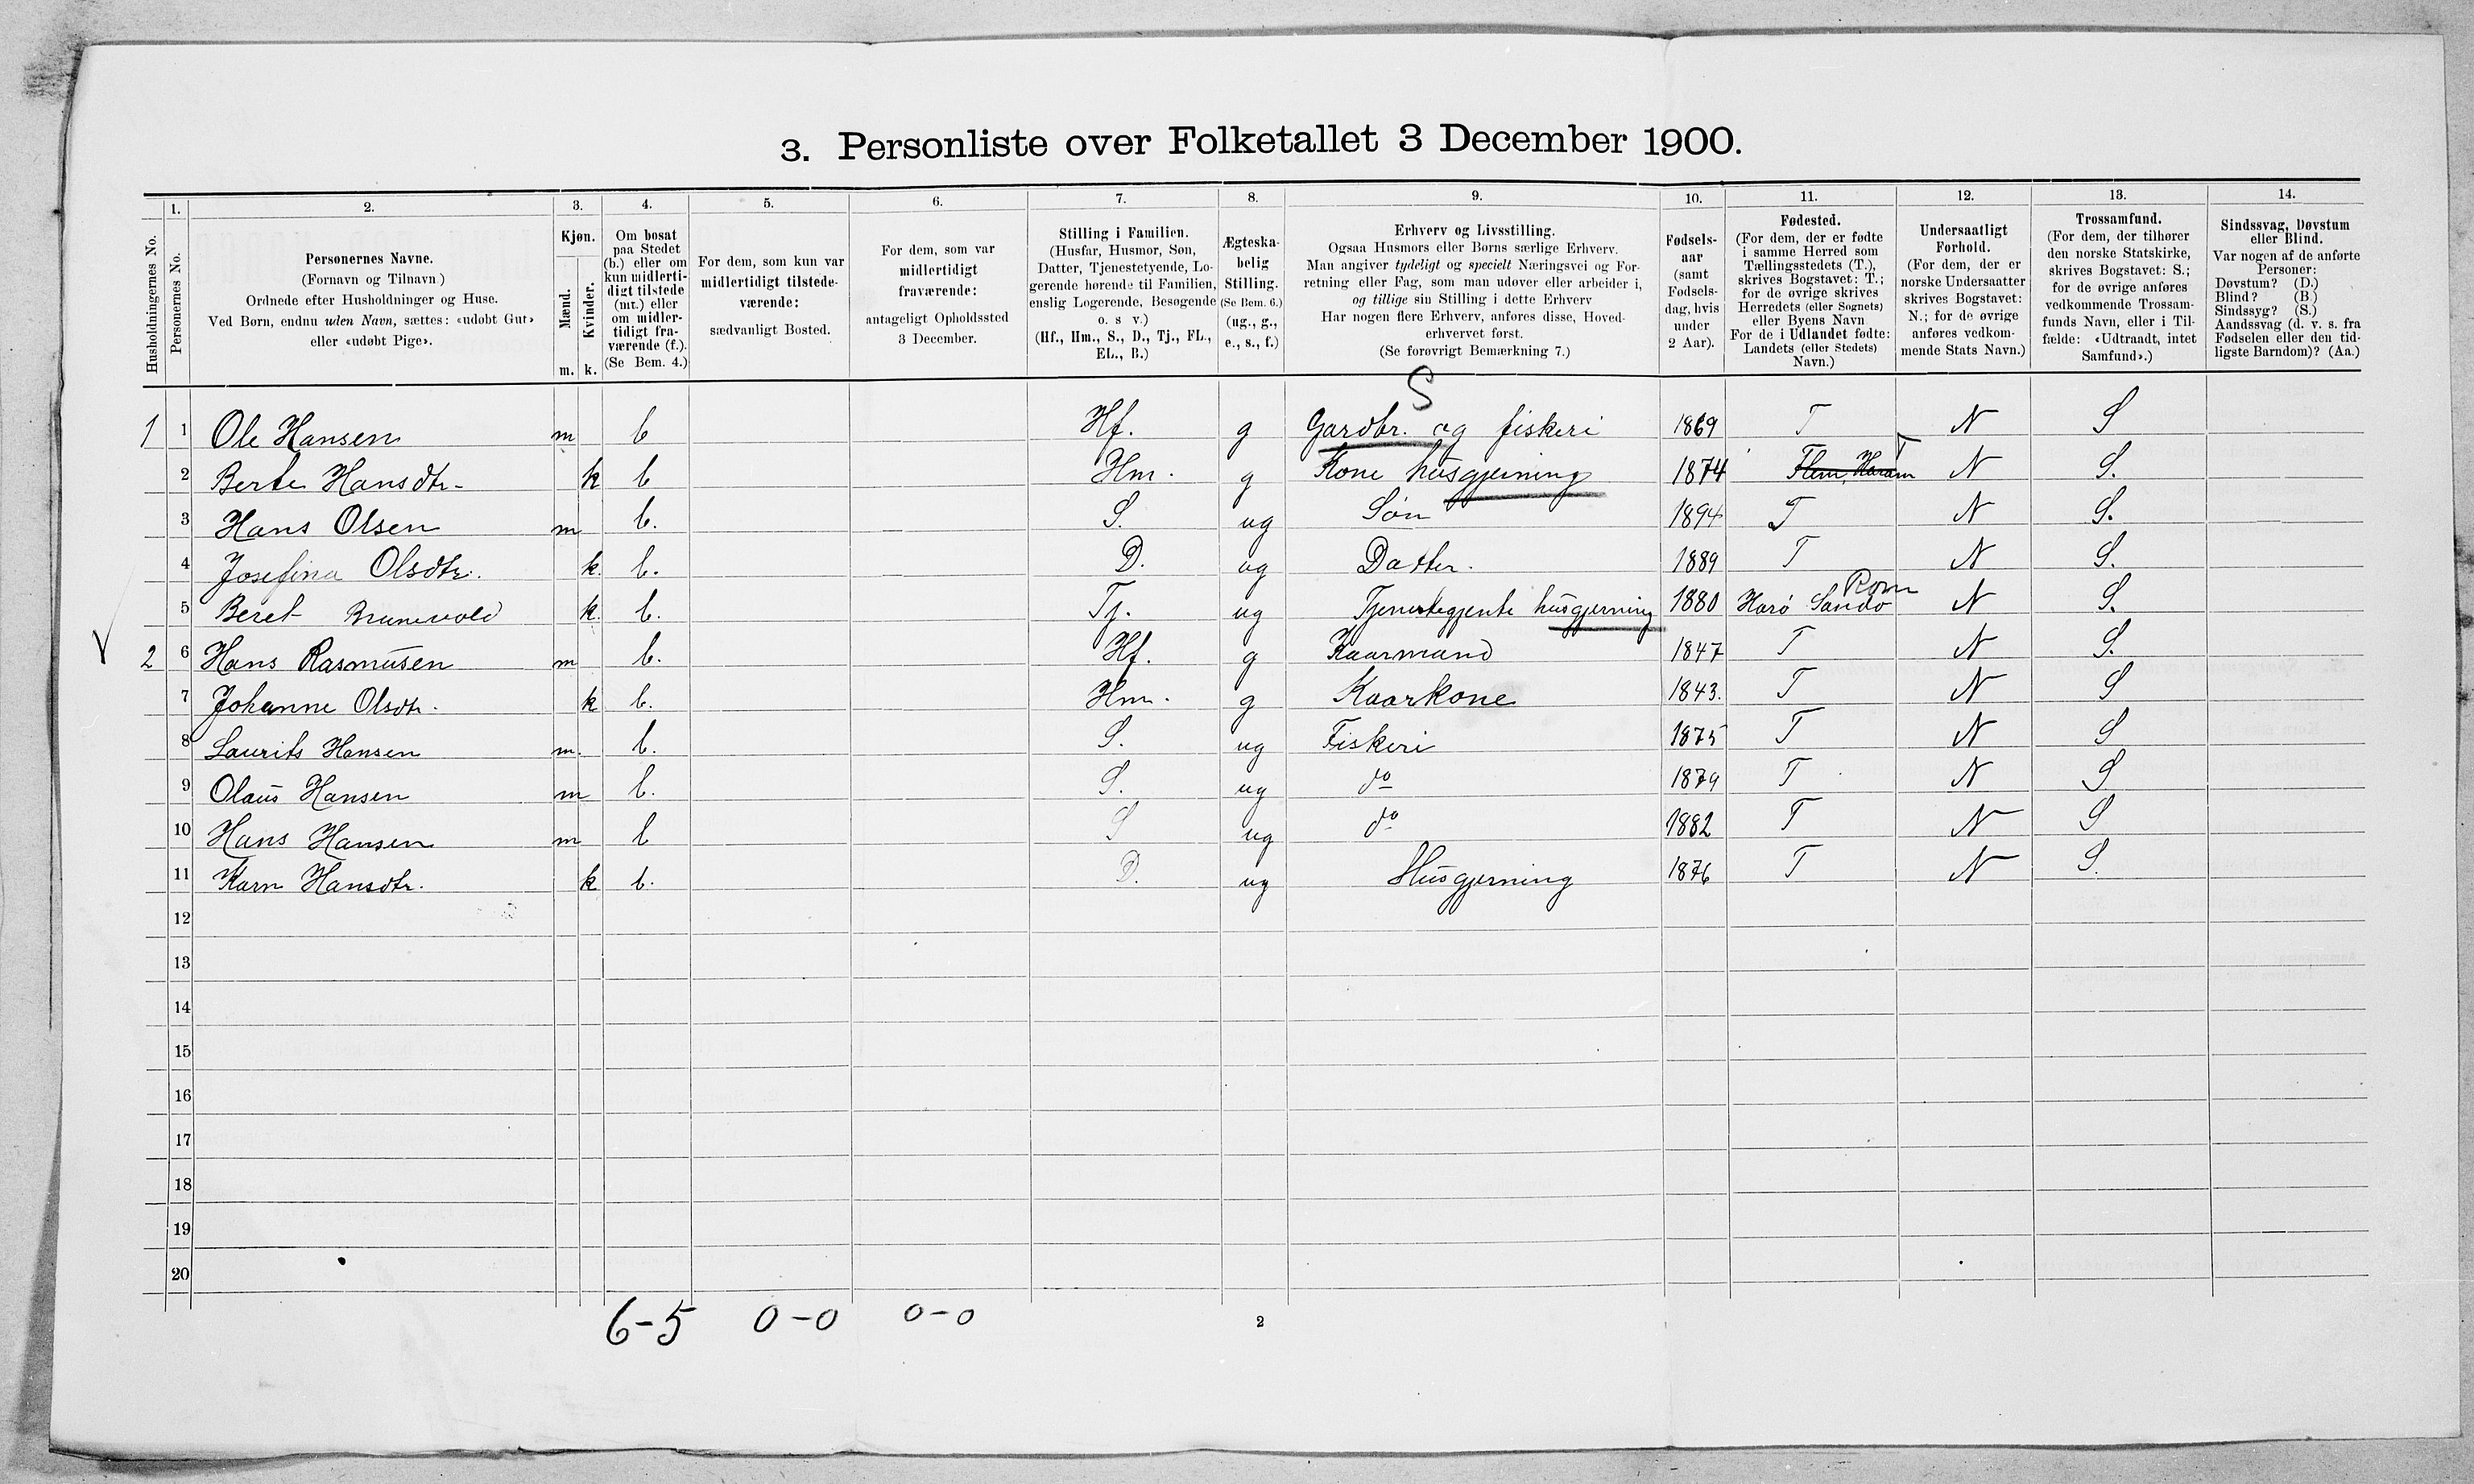 3. Personliste over Folketallet 3 December 1900.
Husholdningernes No.
1.
Personernes No.
2.
Personernes Navne.
(Fornavn og Tilnavn)
Ordnede efter Husholdninger og Huse.
Ved Børn, endnu uden Navn, sættes: «udøbt Gut»
eller «udøbt Pige».
3.
Kjøn.
Mænd.
Kvinder.
m. k.
4.
Om bosat
paa Stedet
(b.) eller om
kun midlerti-
digt tilstede
(mt.) eller
om midler-
tidigt fra-
værende (f.).
(Se Bem. 4.)
5.
For dem, som kun var
midlertidigt tilstede-
værende:
sædvanligt Bosted.
6.
For dem, som var
midlertidigt
fraværende:
antageligt Opholdssted
3 December.
7.
Stilling i Familien.
(Husfar, Husmor, Søn,
Datter, Tjenestetyende, Lo-
gerende hørende til Familien,
enslig Logerende, Besøgende
o. s v.)
(Hf., Hm., S., D., Tj., FL.,
EL., B.)
8.
Ægteska-
belig
Stilling.
(Se Bem. 6.)
(ug., g.,
e., s., f.)
9.
Erhverv og Livsstilling.
Ogsaa Husmors eller Børns særlige Erhverv.
Man angiver tydeligt og specielt Næringsvei og For-
retning eller Fag, som man udøver eller arbeider i,
og tillige sin Stilling i dette Erhverv
Har nogen flere Erhverv, anføres disse, Hoved-
erhvervet først.
(Se forøvrigt Bemærkning 7.)
10.
Fødsels-
aar
(samt
Fødsels-
dag, hvis
under
2 Aar).
11.
Fødested.
(For dem, der er fødte
i samme Herred som
Tællingsstedets (T.),
skrives Bogstavet: T.;
for de øvrige skrives
Herredets (eller Sognets)
eller Byens Navn
For de i Udlandet fødte:
Landets (eller Stedets)
Navn.)
12.
Undersaatligt
Forhold.
(For dem, der er
norske Undersaatter
skrives Bogstavet:
N.; for de øvrige
anføres vedkom-
mende Stats Navn.)
13.
Trossamfund.
(For dem, der tilhører
den norske Statskirke,
skrives Bogstavet: S.;
for de øvrige anføres
vedkommende Trossam-
funds Navn, eller i Til-
fælde: «Udtraadt, intet
Samfund».)
14.
Sindssvag, Døvstum
eller Blind.
Var nogen af de anførte
Personer:
Døvstum? (D.)
Blind? (B.)
Sindssyg? (S.)
Aandssvag (d. v. s. fra
Fødselen eller den tid-
ligste Barndom)? (Aa.)
S
1 1 Ole Hansen m b Hf. g Gardbr. og fiskeri 1869 T N S
T
2 Berte Hansdtr. k b Hm. g Kone husgjerning 1874 Flem, Haram N S.
3 Hans Olsen m b. S. ug Søn 1894 T N S.
4 Josefina Olsdtr. k. b. D. ug Datter. 1889 T N S.
Rom
5 Beret Brunevold k. b. Tj. ug Tjenestegjente husgjerning 1880 Harø Sandø N S.
2 6 Hans Rasmusen m b. Hf. g Kaarmand 1847 T N S.
7 Johanne Olsdtr. k b. Hm. g Kaarkone 1843. T N S
8 Laurits Hansen m. b. S. ug Fiskeri 1875 T N S
9 Olaus Hansen m b. S. ug do 1879 T N S
10 Hans Hansen m b S ug do 1882 T N S
11 Karn Hansdtr. k b. D. ug Husgjerning 1876 T N S.
12
13
14
15
16
17
18
19
20
6-5 0-0 0-0
2